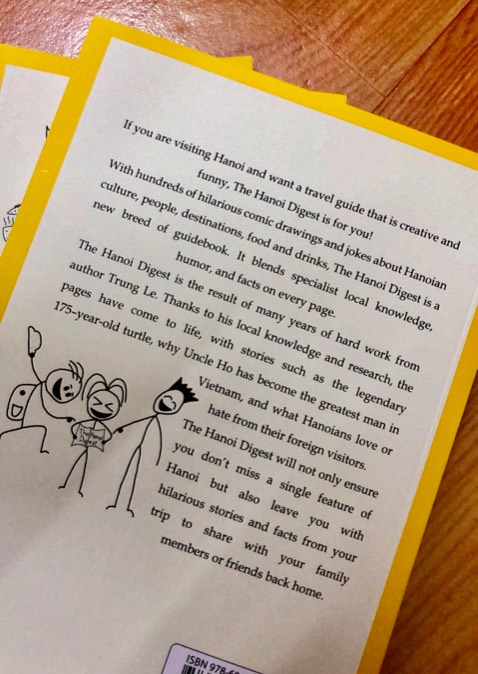 If you are visiting Hanoi and want a travel guide that is creative and
funny, The Hanoi Digest is for you!
With hundreds of hilarious comic drawings and jokes about Hanoian
culture, people, destinations, food and drinks, The Hanoi Digest is a
new breed of guidebook. It blends specialist local knowledge,
humor, and facts on every page.
The Hanoi Digest is the result of many years of hard work from
author Trung Le. Thanks to his local knowledge and research, the
pages have come to life, with stories such as the legendary
175-year-old turtle, why Uncle Ho has become the greatest man in
Vietnam, and what Hanoians love or
hate from their foreign visitors.
The Hanoi Digest will not only ensure
you don't miss a single feature of
Hanoi but also leave you with
hilarious stories and facts from your
trip to share with your family
members or friends back home.
The Hanoi
Digest
ISBN 978-6